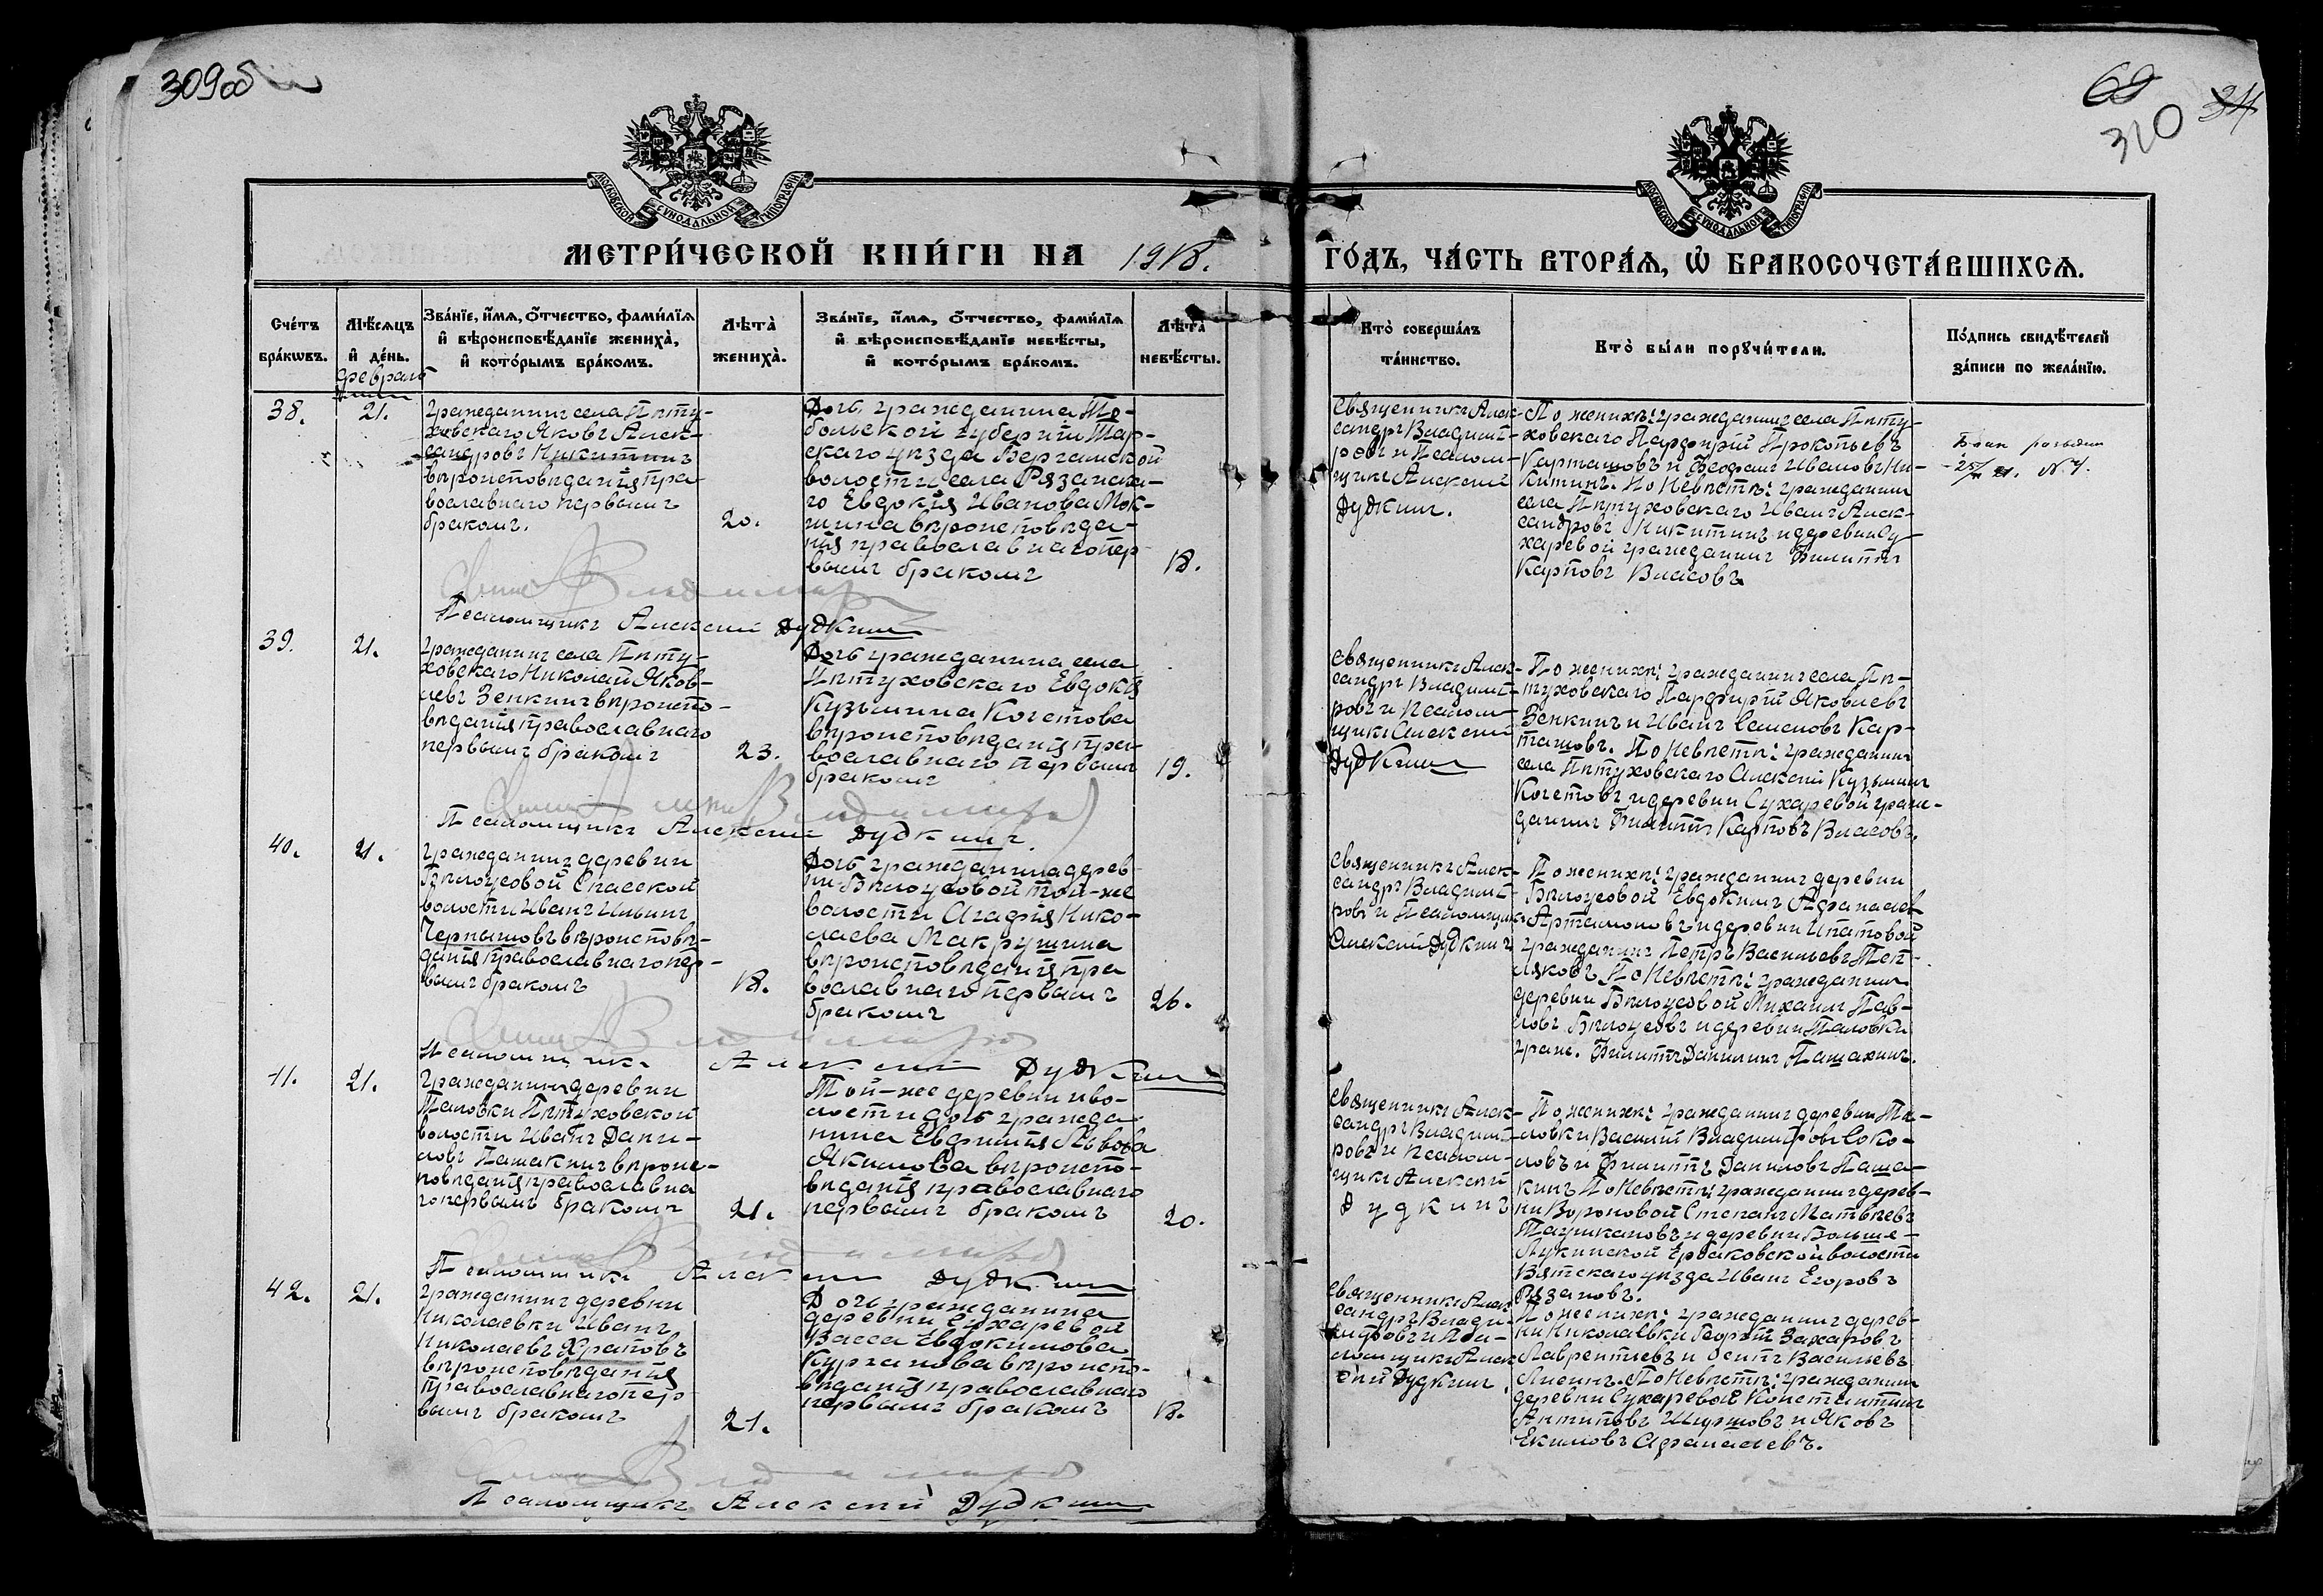 309об
69
310 34
МОСКОВСКОЙ СѴНОДАЛЬНОЙ ТИПОГРАФІИ
МОСКОВСКОЙ СѴНОДАЛЬНОЙ ТИПОГРАФІИ
МЕТРИ́ЧЕСКОЙ КНИ́ГИ НА 1918.
ГО́ДЪ, ЧА́СТЬ ВТОРА́Ѧ, Ѽ БРАКОСОЧЕТА́ВШИХСѦ.
Сче́тъ
бра́кѡвъ.
Мѣ́сѧцъ
и҆ де́нь.
Февраль
Зва́нїе, и҆́мѧ, ѻ҆́тчество, фами́лїѧ
и҆ вѣроисповѣ́данїе жениха̀,
и҆ кото́рымъ бра́комъ.
Лѣ́та̀
жениха̀.
Зва́нїе, и҆́мѧ, ѻ҆́тчество, фами́лїѧ
и҆ вѣроисповѣ́данїе невѣ́сты,
и҆ кото́рымъ бра́комъ.
Лѣ́та̀
невѣ́сты.
Кто̀ соверша́лъ
та́инство.
Кто̀ бы́ли порꙋчи́тели.
По́дпись свидѣ́телей
за́писи по жела́нїю.
38.
21.
Гражданинъ села Пѣту-
ховскаго Яковъ Алек-
сандровъ Никитинъ
вѣроисповѣданія пра-
вославнаго первымъ
бракомъ.
20.
Дочь гражданина То-
больской губерніи Тар-
скаго уѣзда Бергамской
волости села Рязанска-
го Евдокія Иванова Мок-
шина вѣроисповѣда-
нія православнаго пер-
вымъ бракомъ
18.
Священникъ Алек-
сандръ Владимі-
ровъ и Псалом-
щикъ Алексѣй
Дудкинъ.
По женихѣ: гражданинъ села Пѣту-
ховскаго Парфирій Прокопьевъ
Карташовъ и Феофанъ Ивановъ Ни-
китинъ. По Невѣстѣ: гражданинъ
села Пѣтуховскаго Иванъ Алек-
сандровъ Никитинъ и деревни Су-
харевой гражданинъ Филиппъ
Карповъ Власовъ.
Псаломщикъ Алексѣй Дудкинъ
39.
21.
Гражданинъ села Пѣту-
ховскаго Николай Яков-
левъ Зенкинъ вѣроиспо-
вѣданія православнаго
первымъ бракомъ
23.
Дочь гражданина села
Пѣтуховскаго Евдокія
Кузьмина Кочетова
вѣроисповѣданія пра-
вославнаго первымъ
бракомъ
19.
Священникъ Алек-
сандръ Владимі-
ровъ и Псалом-
щикъ Алексѣй
Дудкинъ
По женихѣ: гражданинъ села Пѣ-
туховскаго Парфирій Яковлевъ
Зенкинъ и Иванъ Семеновъ Кар-
ташовъ. По Невѣстѣ: гражданинъ
села Пѣтуховскаго Алексѣй Кузьминъ
Кочетовъ и деревни Сухаревой граж-
данинъ Филиппъ Карповъ Власовъ.
Псаломщикъ Алексѣй Дудкинъ.
40.
21.
Гражданинъ деревни
Бѣлоусовой Спасской
волости Иванъ Ильинъ
Чернышовъ вѣроисповѣ-
данія православнаго пер-
вымъ бракомъ
18.
Дочь гражданина дерев-
ни Бѣлоусовой той-же
волости Агафія Нико-
лаева Макрушина
вѣроисповѣданія пра
вославнаго первымъ
бракомъ
26.
Священникъ Алек-
сандръ Владимі-
ровъ и Псаломщикъ
Алексѣй Дудкинъ
По женихѣ: гражданинъ деревни
Бѣлоусовой Евдокимъ Афанасьев
Артамоновъ и деревни Ипатовой
гражданинъ Петръ Васильевъ
По Невѣстѣ: гражданинъ
деревни Бѣлоусовой Михаилъ Пав-
ловъ Бѣлоусовъ и деревни Таловки
граж. Филиппъ Данилинъ Пашакинъ.
Псаломщикъ Алексѣй Дудкинъ
41.
21.
Гражданинъ деревни
Таловки Пѣтуховской
волости Иванъ Дани-
ловъ Пашакинъ вѣроис-
повѣданія православна
го первымъ бракомъ
21.
Той-же деревни и во-
лости дочь гражда-
нина Евфимія Львова
Якимова вѣроиспо-
вѣданія православнаго
первымъ бракомъ
20.
Священникъ Алек-
сандръ Владимі-
ровъ и Псалом-
щикъ Алексѣй
Дудкинъ
По женихѣ: гражданинъ деревни Та-
ловки Василій Владиміровъ Соко-
ловъ и Филиппъ Даниловъ Паша-
кинъ По Невѣстѣ: гражданинъ дерев-
ни Вороновой Степанъ Матвѣевъ
и деревни Больше-
Лукинской волости
Вятскаго уѣзда Иванъ Егоровъ
Рязановъ.
Псаломщикъ Алексѣй Дудкинъ
42.
21.
Гражданинъ деревни
Николаевки Иванъ
Николаевъ Храповъ
вѣроисповѣданія
православнаго пер
вымъ бракомъ
21.
Дочь гражданина
деревни Сухаревой
Васса Евдокимова
Курганова вѣроиспо-
вѣданія православнаго
первымъ бракомъ
18.
Священникъ Алек
сандръ Влади-
міровъ и Пса-
ломщикъ Алек
сѣй Дудкинъ.
По женихѣ: гражданинъ дерев-
ни Николаевки Захаровъ
Лаврентьевъ и Осипъ Васильевъ
По Невѣстѣ: гражданинъ
деревни Сухаревой Константинъ
Антиповъ Ширшовъ и Яковъ
Екимовъ Афанасьевъ.
Псаломщикъ Алексѣй Дудкинъ